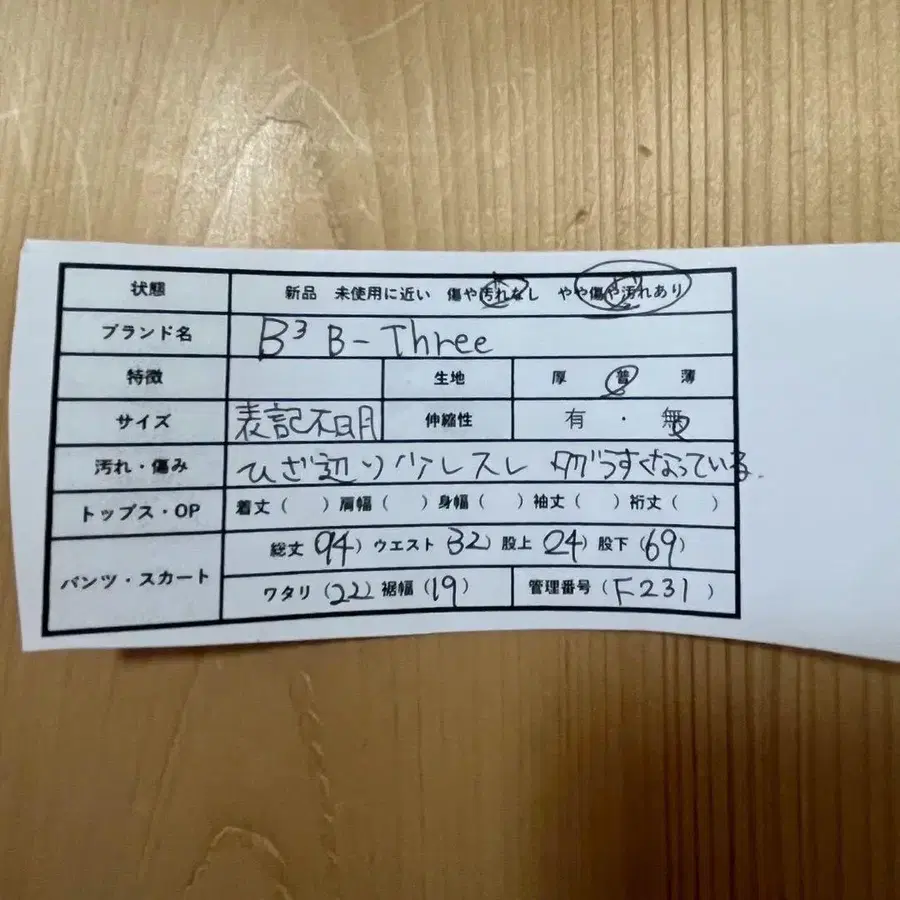 状態 新品 未使用に近い 傷や汚れなし やや傷や汚れあり
ブランド名 B³ B-Three
特徴 生地 厚 普 薄
サイズ 表記不明 伸縮性 有 ・ 無
汚れ・傷み ひざ辺り少しスレ タグうすくなっている.
トップス・OP 着丈 ( ) 肩幅 ( ) 身幅 ( ) 袖丈 ( ) 裄丈 ( )
パンツ・スカート 総丈 (94) ウエスト (32) 股上 (24) 股下 (69)
ワタリ (22) 裾幅 (19) 管理番号 (F231)